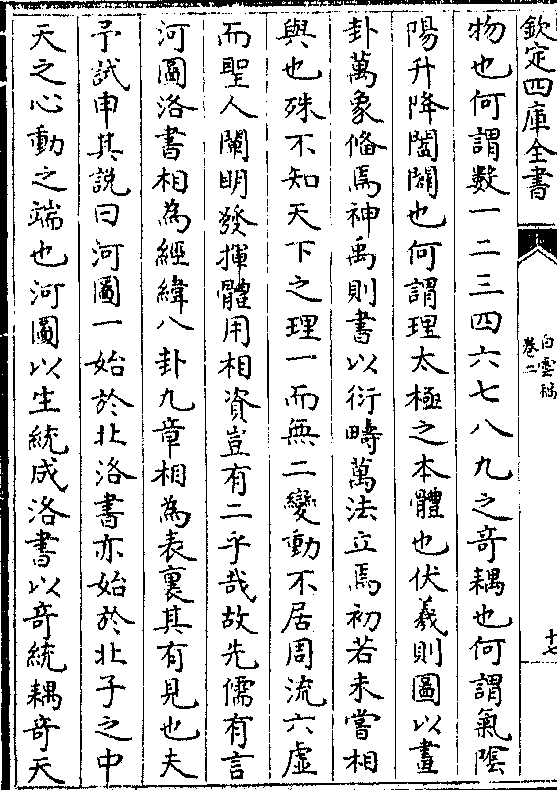 欽定四庫全書
白雲稿
卷二
十七
物也何謂數一二三四六七八九之竒耦也何謂氣隂
陽升降闔闢也何謂理太極之本體也伏羲則圖以畫
卦萬象備焉神禹則書以衍疇萬法立焉初若未嘗相
與也殊不知天下之理一而無二變動不居周流六虛
而聖人闡明發揮體用相資豈有二乎哉故先儒有言
河圖洛書相為經緯八卦九章相為表裏其有見也夫
予試申其說曰河圖一始於北洛書亦始於北子之中
天之心動之端也河圖以生統成洛書以奇統耦奇天